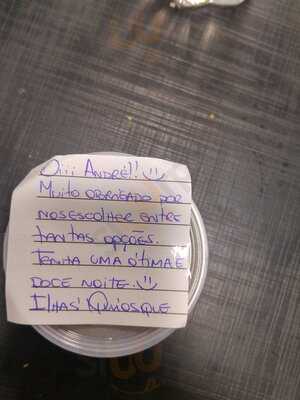 Oiii André!! :)
Muito obrigado por
nos escolher entre
tantas opções.
Tenha uma ótima e
doce noite. :)
Ilhas' Quiosque